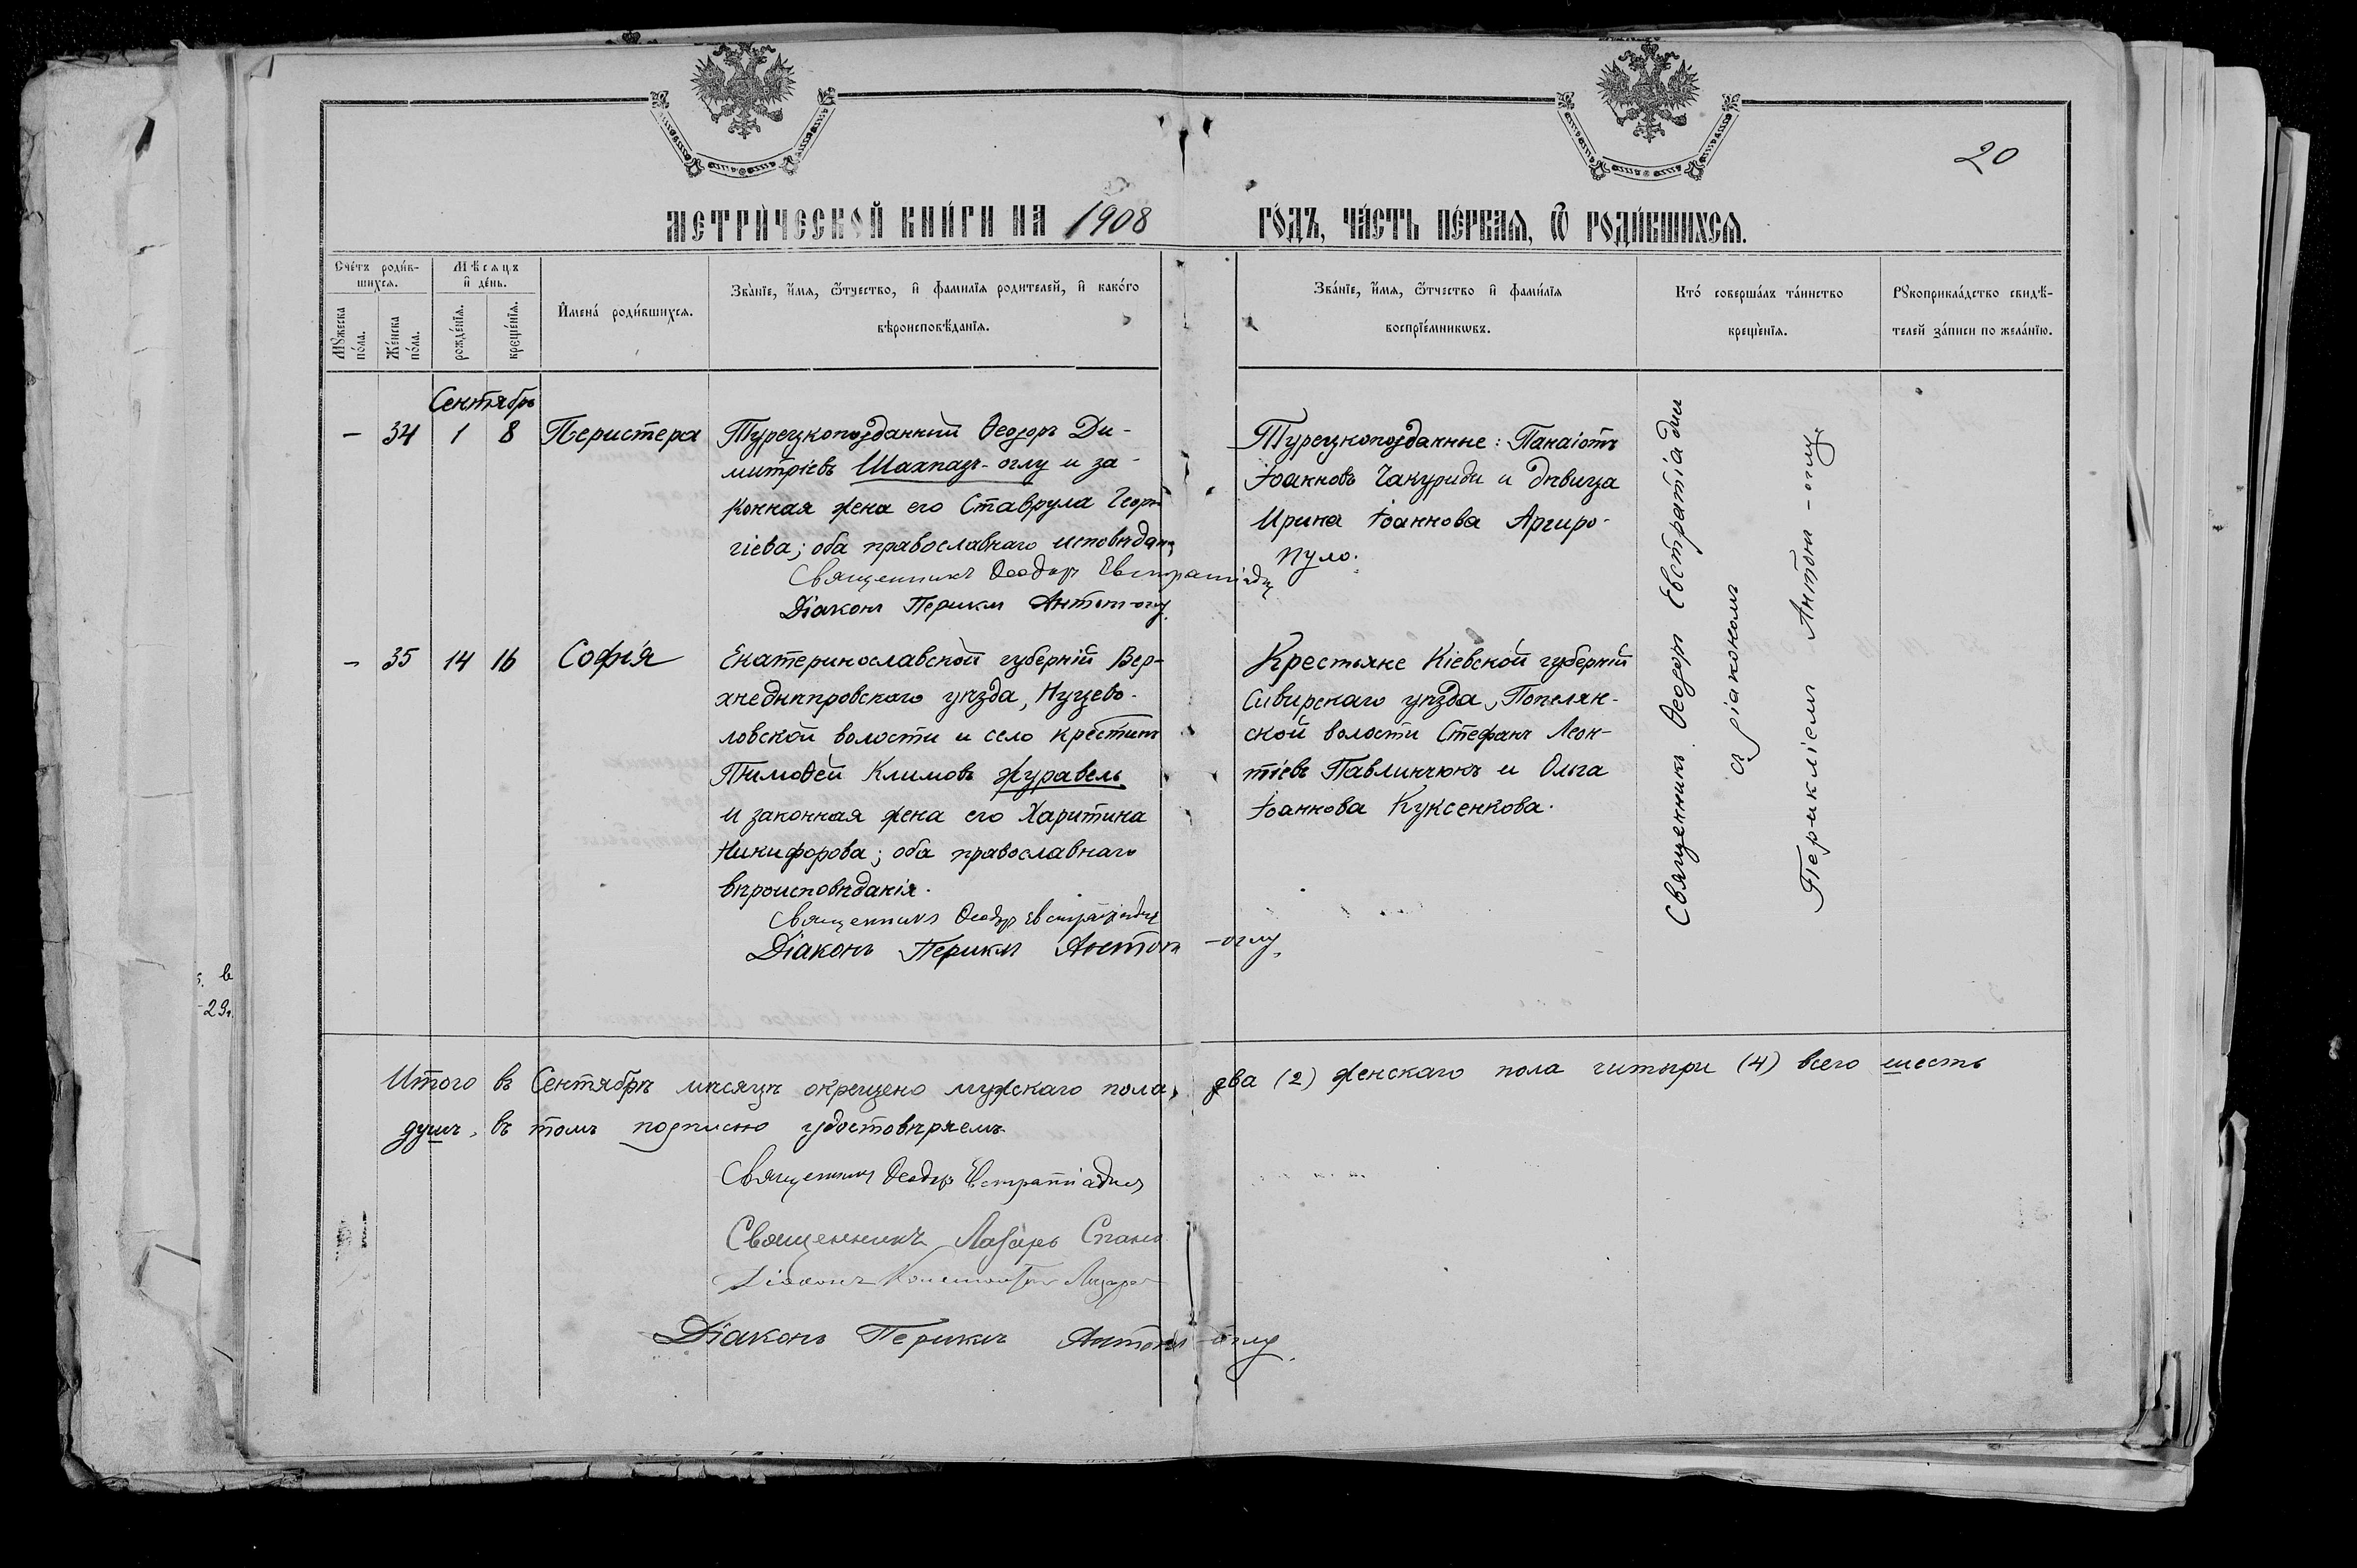 20
МЕТРИЧЕСКОЙ КНИГИ НА 1908 ГОДЪ, ЧАСТЬ ПЕРВАЯ, Ѿ РОДИВШИХСЯ.
Счетъ родив-
шихся.
Мужеска
пола.
Женска
пола.
Мѣсяцъ
и день.
рожденія.
крещенія.
Имена родившихся.
Званіе, имя, ѿчество, и фамилія родителей, и какого
вѣроисповѣданія.
Званіе, имя, ѿчество и фамилія
воспріемниковъ.
Кто совершалъ таинство
крещенія.
Рукоприкладство свидѣ-
телей записи по желанію.
Сентябрь
— 34 1 8 Перистера
Турецкоподданный Ѳеодоръ Ди-
митріевъ Шахпазъ-оглу и за-
конная жена его Ставрула Геор-
гіева; оба православнаго исповѣдан
Священникъ Ѳеодоръ Евстратіади
Діаконъ Периклъ Антонъ-оглу.
Турецкоподданные: Панаіотъ
Іоанновъ Чакуриди и дѣвица
Ирина Іоаннова Аргиро-
пуло.
Священникъ Ѳеодоръ Евстратіади
съ діакономъ
Перикліемъ Антонъ-оглу.
— 35 14 16 Софія
Екатеринославской губерній Вер-
хнеднѣпровскаго уѣзда,
ловской волости и село крестин
Тимоѳей Климовъ Журавель
и законная жена его Харитина
Никифорова; оба православнаго
вѣроисповѣданія.
Священникъ Ѳеодоръ Евстратіади
Діаконъ Периклъ Антонъ-оглу.
Крестьяне Кіевской губерній
Сквирскаго уѣзда, Попелян-
ской волости Стефанъ Леон-
тіевъ Павлинчюкъ и Ольга
Іоаннова Куксенкова.
Итого въ Сентябрѣ мѣсяцѣ окрещено мужскаго пола, два (2) женскаго пола читыри (4) всего шесть
душъ, въ томъ подписью удостовѣряемъ.
Священникъ Ѳеодоръ Евстратіади
Священникъ Лазарь Спано
Діаконъ
Діаконъ Периклъ Антонъ-оглу.
в
29